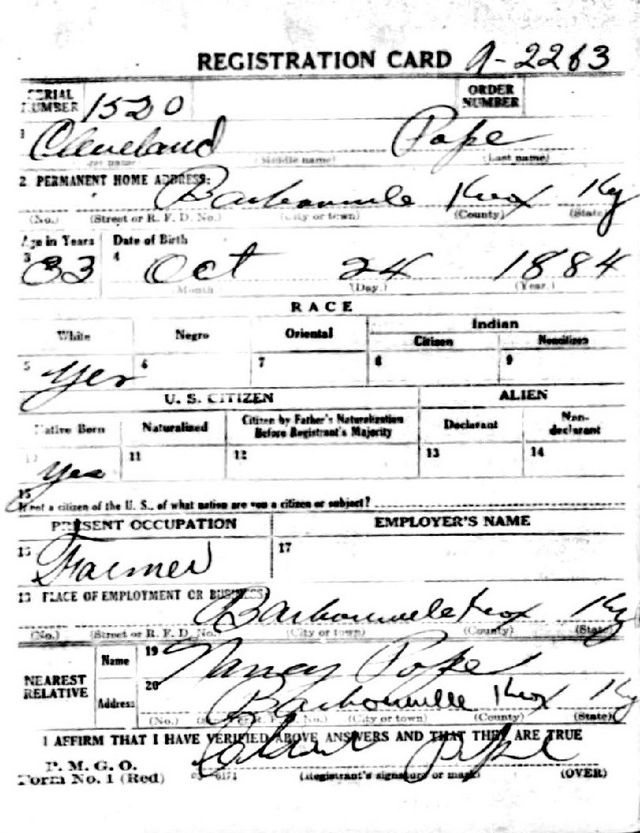 REGISTRATION CARD A-2263
SERIAL NUMBER 1520 ORDER NUMBER
1 Cleveland Pope
(Middle name) (Last name)
2 PERMANENT HOME ADDRESS:
Barbourville Knox Ky
(No.) (Street or R. F. D. No.) (City or town) (County) (State)
Age in Years Date of Birth
3 33 4 Oct 24 1884
Month (Day.) (Year.)
RACE
White Negro Oriental Indian
Citizen Noncitizen
5 Yes 6 7 8 9
U. S. CITIZEN ALIEN
Native Born Naturalized Citizen by Father's Naturalization Before Registrant's Majority Declarant Non-declarant
10 Yes 11 12 13 14
15
If not a citizen of the U. S., of what nation are you a citizen or subject?
PRESENT OCCUPATION EMPLOYER'S NAME
16 Farmer 17
18 PLACE OF EMPLOYMENT OR BUSINESS
Barbourville Knox Ky
(No.) (Street or R. F. D. No.) (City or town) (County) (State)
NEAREST RELATIVE Name 19 Nancy Pope
Address 20 Barbourville Knox Ky
(No.) (Street or R. F. D. No.) (City or town) (County) (State)
I AFFIRM THAT I HAVE VERIFIED ABOVE ANSWERS AND THAT THEY ARE TRUE
P. M. G. O.
Form No. 1 (Red) Pope
(Registrant's signature or mark) (OVER)